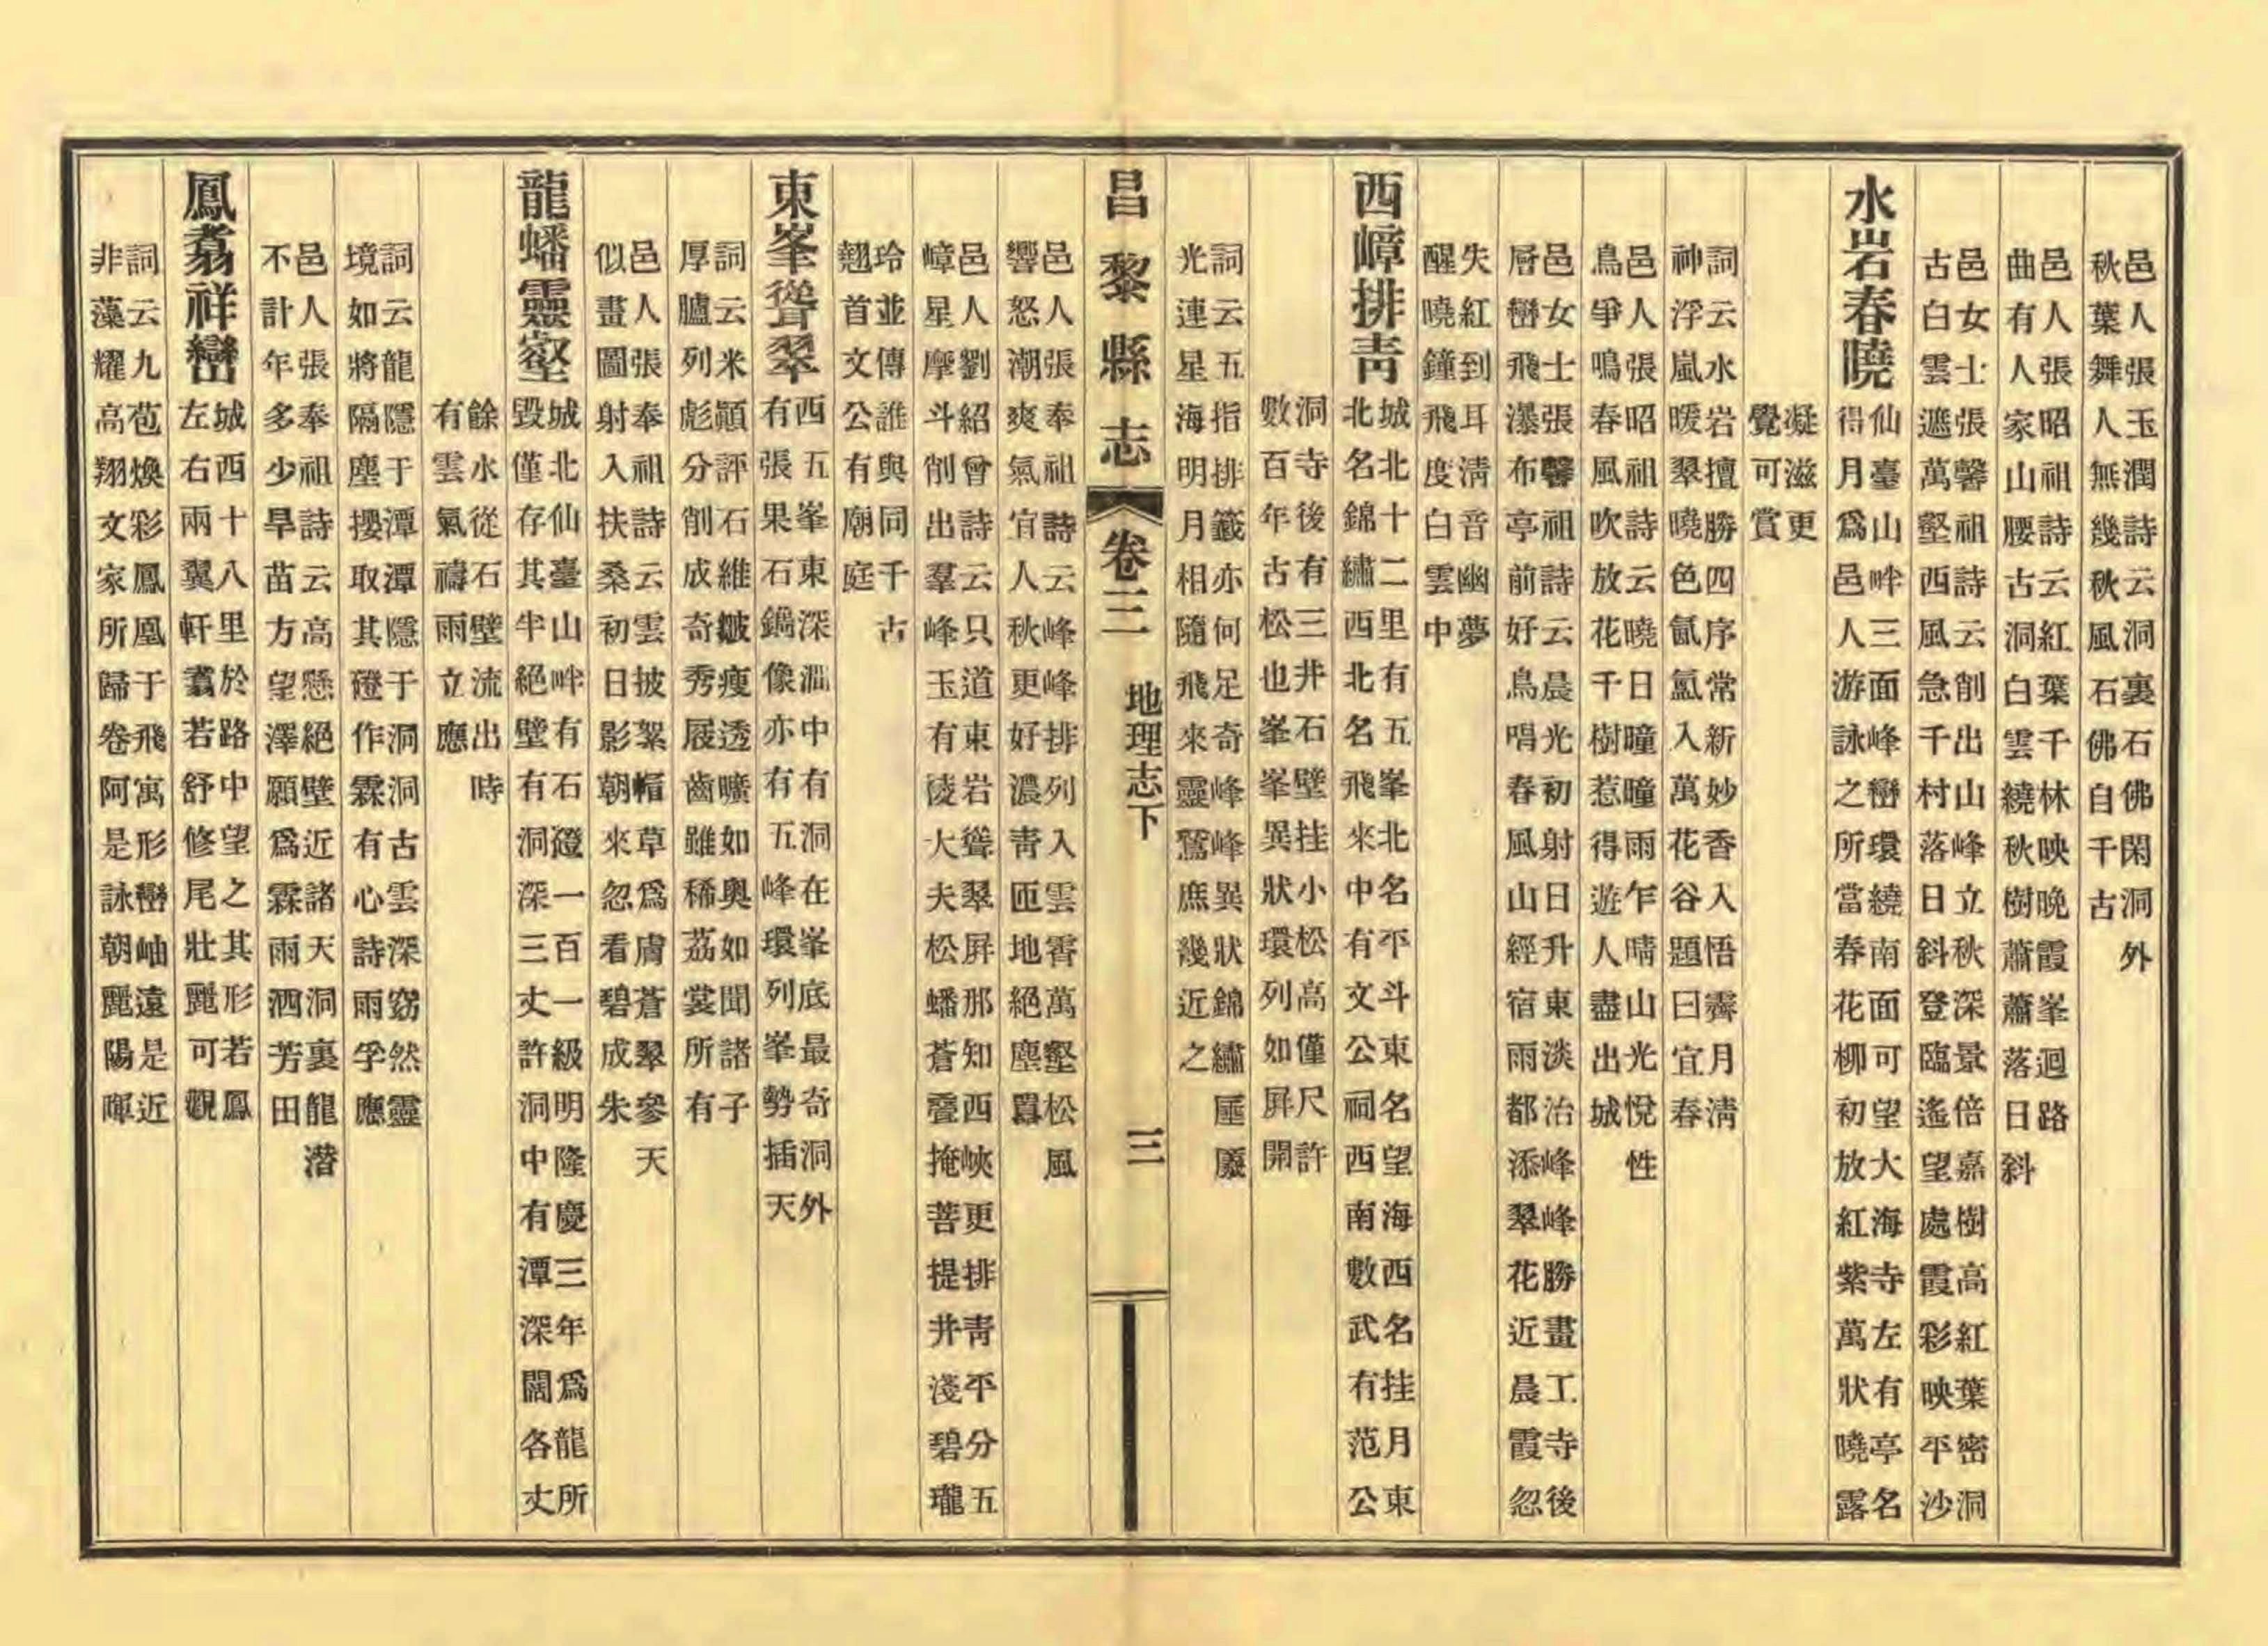 邑人張玉潤詩云洞裏石佛閑洞外
秋葉舞人無幾秋風石佛自千古
邑人張昭祖詩云紅葉千林映晚霞峯迴路
曲有人家山腰古洞白雲繞秋樹蕭蕭落日斜
邑女士張馨祖詩云削出山峰立秋深景倍嘉樹高紅葉密洞
古白雲遮萬壑西風急千村落日斜登臨遙望處霞彩映平沙
水岩春曉
仙臺山畔三面峰巒環繞南面可望大海寺左有亭名
得月爲邑人游詠之所當春花柳初放紅紫萬狀曉露
凝滋更
覺可賞
詞云水岩擅勝四序常新妙香入悟霽月淸
神浮嵐暖翠曉色氤氳入萬花谷題曰宜春
邑人張昭祖詩云曉日曈曈雨乍晴山光悅性
鳥爭鳴春風吹放花千樹惹得遊人盡出城
邑女士張馨祖詩云晨光初射日升東淡冶峰峰勝畫工寺後
層巒飛瀑布亭前好鳥唱春風山經宿雨都添翠花近晨霞忽
失紅到耳淸音幽夢
醒曉鐘飛度白雲中
西嶂排青
城北十二里有五峯北名平斗東名望海西名挂月東
北名錦繡西北名飛來中有文公祠西南數武有范公
洞寺後有三井石壁挂小松高僅尺許
數百年古松也峯峯異狀環列如屏開
詞云五指排籤亦何足奇峰峰異狀錦繡匪廈
光連星海明月相隨飛來靈鷲庶幾近之
昌黎縣志
卷三
地理志下
三
邑人張奉祖詩云峰峰排列入雲霄萬壑松風
響怒潮爽氣宜人秋更好濃靑匝地絕塵囂
邑人劉紹曾詩云只道東岩聳翠屏那知西峽更排靑平分五
嶂星摩斗削出羣峰玉有陵大夫松蟠蒼疊掩菩提井淺碧瓏
玲並傳誰與同千古
翹首文公有廟庭
東峯聳翠
西五峯東深澗中有洞在峯底最奇洞外
有張果石鍋像亦有五峰環列峯勢插天
詞云米顚評石維皺瘦透曠如奥如聞諸子
厚臚列彪分削成奇秀屐齒雖稀荔裳所有
邑人張奉祖詩云雲披絮帽草爲膚蒼翠參天
似畫圖射入扶桑初日影朝來忽看碧成朱
龍蟠靈壑
城北仙臺山畔有石磴一百一級明隆慶三年爲龍所
毀僅存其半絕壁有洞深三丈許洞中有潭深闊各丈
餘水從石壁流出時
有雲氣禱雨立應
詞云龍隱于潭潭隱于洞洞古雲深窈然靈
境如將隔塵攖取其磴作霖有心詩雨孚應
邑人張奉祖詩云高懸絕壁近諸天洞裏龍潛
不計年多少旱苗方望澤願爲霖雨洒芳田
鳳翥祥巒
城西十八里於路中望之其形若鳳
左右兩翼軒翥若舒修尾壯麗可觀
詞云九苞煥彩鳳凰于飛寓形巒岫遠是近
非藻耀高翔文家所歸卷阿是詠朝麗陽暉